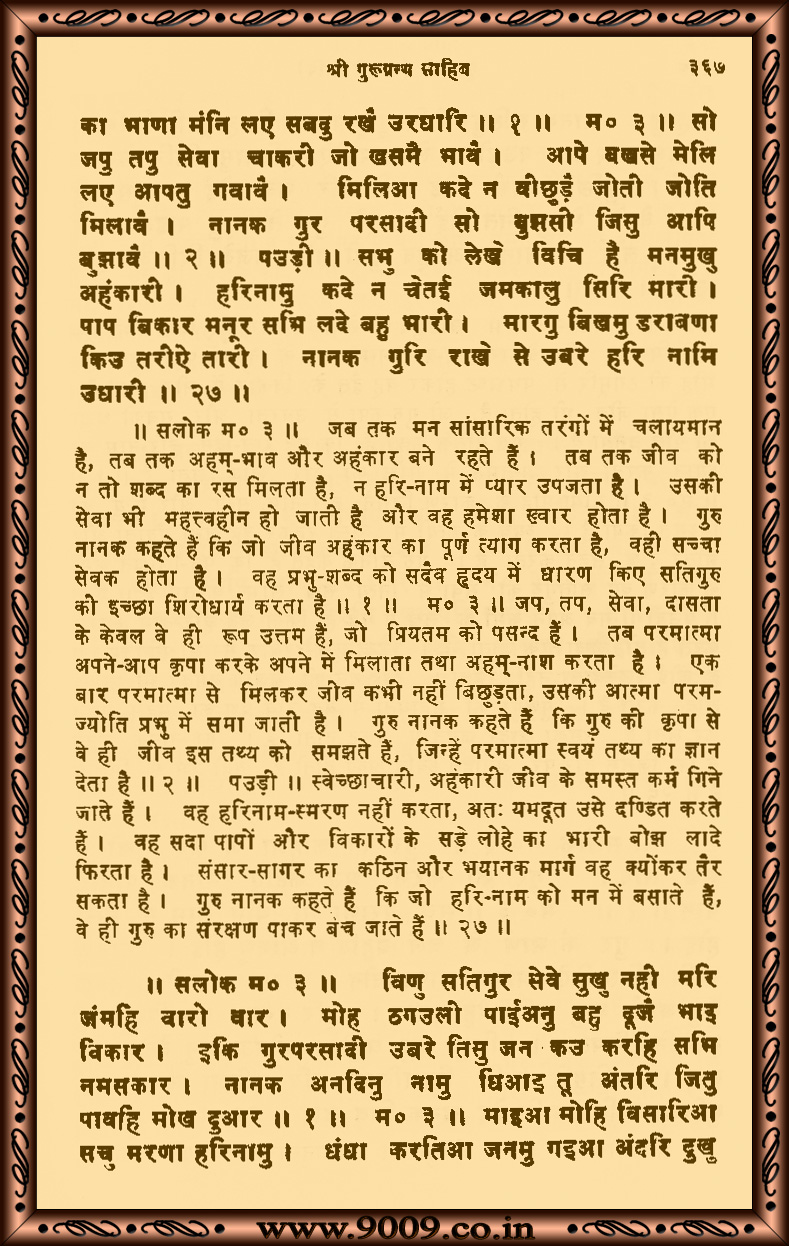 श्री गुरूग्रन्थ साहिब ३६७
का भाणा मंनि लए सबदु रखै उरधारि ॥ १ ॥ म० ३ ॥ सो
जपु तपु सेवा चाकरी जो खसमै भावै । आपे बखसे मेलि
लए आपतु गवावै । मिलिआ कदे न वीछुड़ै जोती जोति
मिलावै । नानक गुर परसादी सो बुझसी जिसु आपि
बुझावै ॥ २ ॥ पउड़ी ॥ सभु को लेखे विचि है मनमुखु
अहंकारी । हरिनामु कदे न चेतई जमकालु सिरि मारी ।
पाप बिकार मनूर सभि लदे बहु भारी । मारगु बिखमु डरावणा
किउ तरीऐ तारी । नानक गुरि राखे से उबरे हरि नामि
उधारी ॥ २७ ॥
॥ सलोक म० ३ ॥ जब तक मन सांसारिक तरंगों में चलायमान
है, तब तक अहम्-भाव और अहंकार बने रहते हैं । तब तक जीव को
न तो शब्द का रस मिलता है, न हरि-नाम में प्यार उपजता है । उसकी
सेवा भी महत्त्वहीन हो जाती है और वह हमेशा ख्वार होता है । गुरु
नानक कहते हैं कि जो जीव अहंकार का पूर्ण त्याग करता है, वही सच्चा
सेवक होता है । वह प्रभु-शब्द को सदैव हृदय में धारण किए सतिगुरु
की इच्छा शिरोधार्य करता है ॥ १ ॥ म० ३ ॥ जप, तप, सेवा, दासता
के केवल वे ही रूप उत्तम हैं, जो प्रियतम को पसन्द हैं । तब परमात्मा
अपने-आप कृपा करके अपने में मिलाता तथा अहम्-नाश करता है । एक
बार परमात्मा से मिलकर जीव कभी नहीं बिछुड़ता, उसकी आत्मा परम-
ज्योति प्रभु में समा जाती है । गुरु नानक कहते हैं कि गुरु की कृपा से
वे ही जीव इस तथ्य को समझते हैं, जिन्हें परमात्मा स्वयं तथ्य का ज्ञान
देता है ॥ २ ॥ पउड़ी ॥ स्वेच्छाचारी, अहंकारी जीव के समस्त कर्म गिने
जाते हैं । वह हरिनाम-स्मरण नहीं करता, अतः यमदूत उसे दण्डित करते
हैं । वह सदा पापों और विकारों के सड़े लोहे का भारी बोझ लादे
फिरता है । संसार-सागर का कठिन और भयानक मार्ग वह क्योंकर तैर
सकता है । गुरु नानक कहते हैं कि जो हरि-नाम को मन में बसाते हैं,
वे ही गुरु का संरक्षण पाकर बच जाते हैं ॥ २७ ॥
॥ सलोक म० ३ ॥ बिणु सतिगुर सेवे सुखु नही मरि
जंमहि वारो वार । मोह ठगउली पाईअनु बहु दूजै भाइ
विकार । इकि गुरपरसादी उबरे तिसु जन कउ करहि सभि
नमसकार । नानक अनदिनु नामु धिआइ तू अंतरि जितु
पावहि मोख दुआर ॥ १ ॥ म० ३ ॥ माइआ मोहि विसारिआ
सचु मरणा हरिनामु । धंधा करतिआ जनमु गइआ अंदरि दुखु
www.9009.co.in